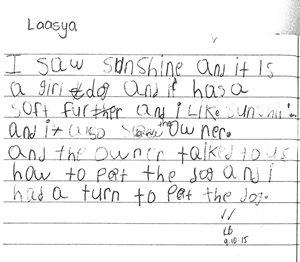 Laasya
I saw sunshine and it is
a girl dog and it has a
soft further and i Like sunshi
and it also saw the owner.
and the owner talked to us
how to pert the dog and i
had a turn to pert the dog.
9.10.15